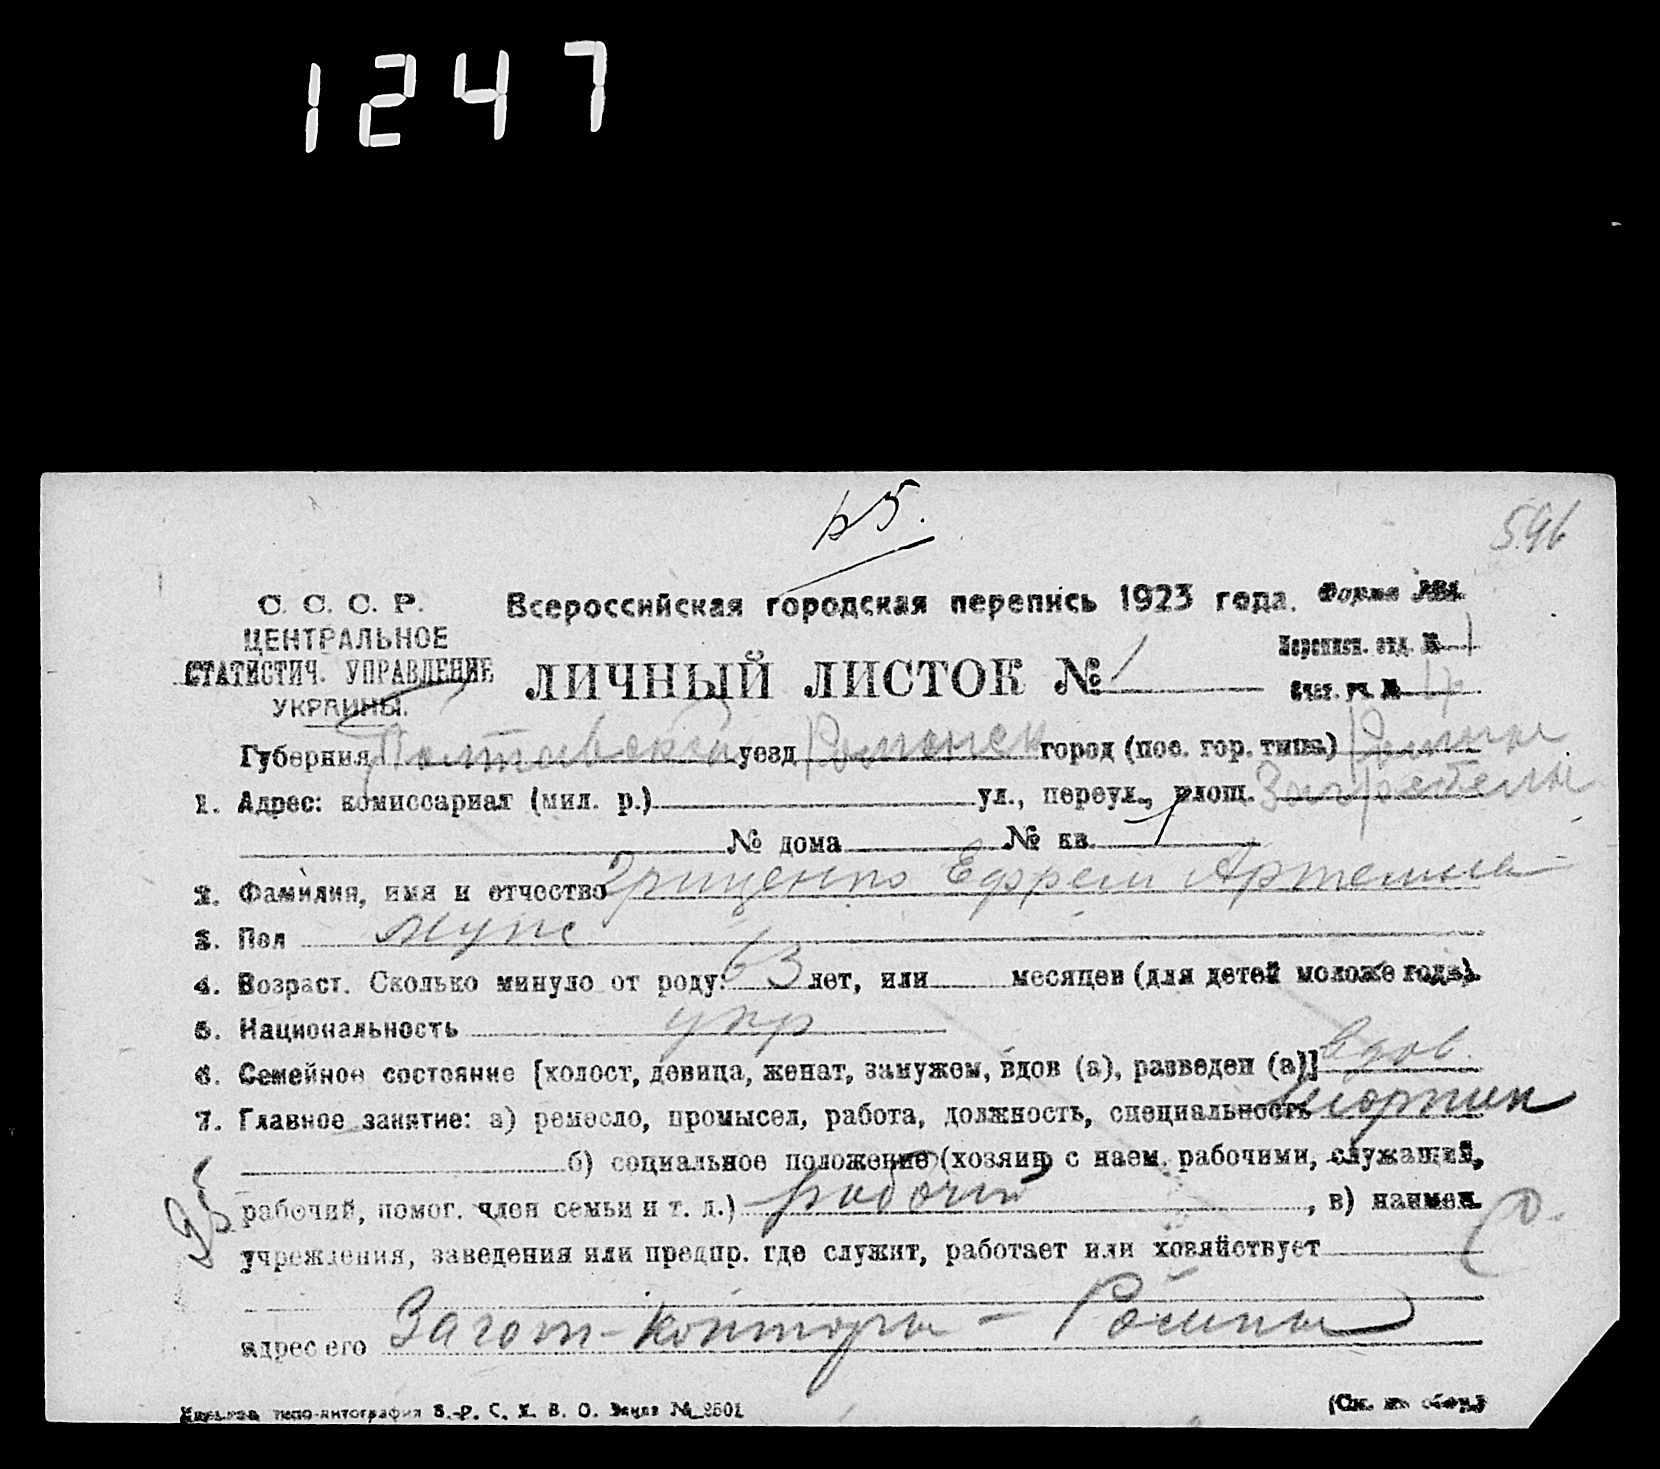 1247
596
С. С. С. Р.
ЦЕНТРАЛЬНОЕ
СТАТИСТИЧ. УПРАВЛЕНИЕ
УКРАИНЫ.
Всероссийская городская перепись 1923 года. Форма №
ЛИЧНЫЙ ЛИСТОК № 1
Переписн. отд. № 1
Счет. уч. №
Губерния Полтавская уезд Роменск город (пос. гор. типа) Ромны
1. Адрес: комиссариат (мил. р.) ул., переул., площ. Загребелье
№ дома № кв.
2. Фамилия, имя и отчество Гриценко Ефрем Артемов
3. Пол муж
4. Возраст. Сколько минуло от роду: 63 лет, или месяцев (для детей моложе года).
5. Национальность укр
6. Семейное состояние [холост, девица, женат, замужем, вдов (а), разведен (а)] вдов.
7. Главное занятие: а) ремесло, промысел, работа, должность, специальность
б) социальное положение (хозяин с наем. рабочими, служащий,
рабочий, помог. член семьи и т. д.) рабочий, в) наимен.
учреждения, заведения или предпр. где служит, работает или хозяйствует
адрес его Загот-контора - Ромны
типо-литография Заказ № 2501
(См. на обор.)